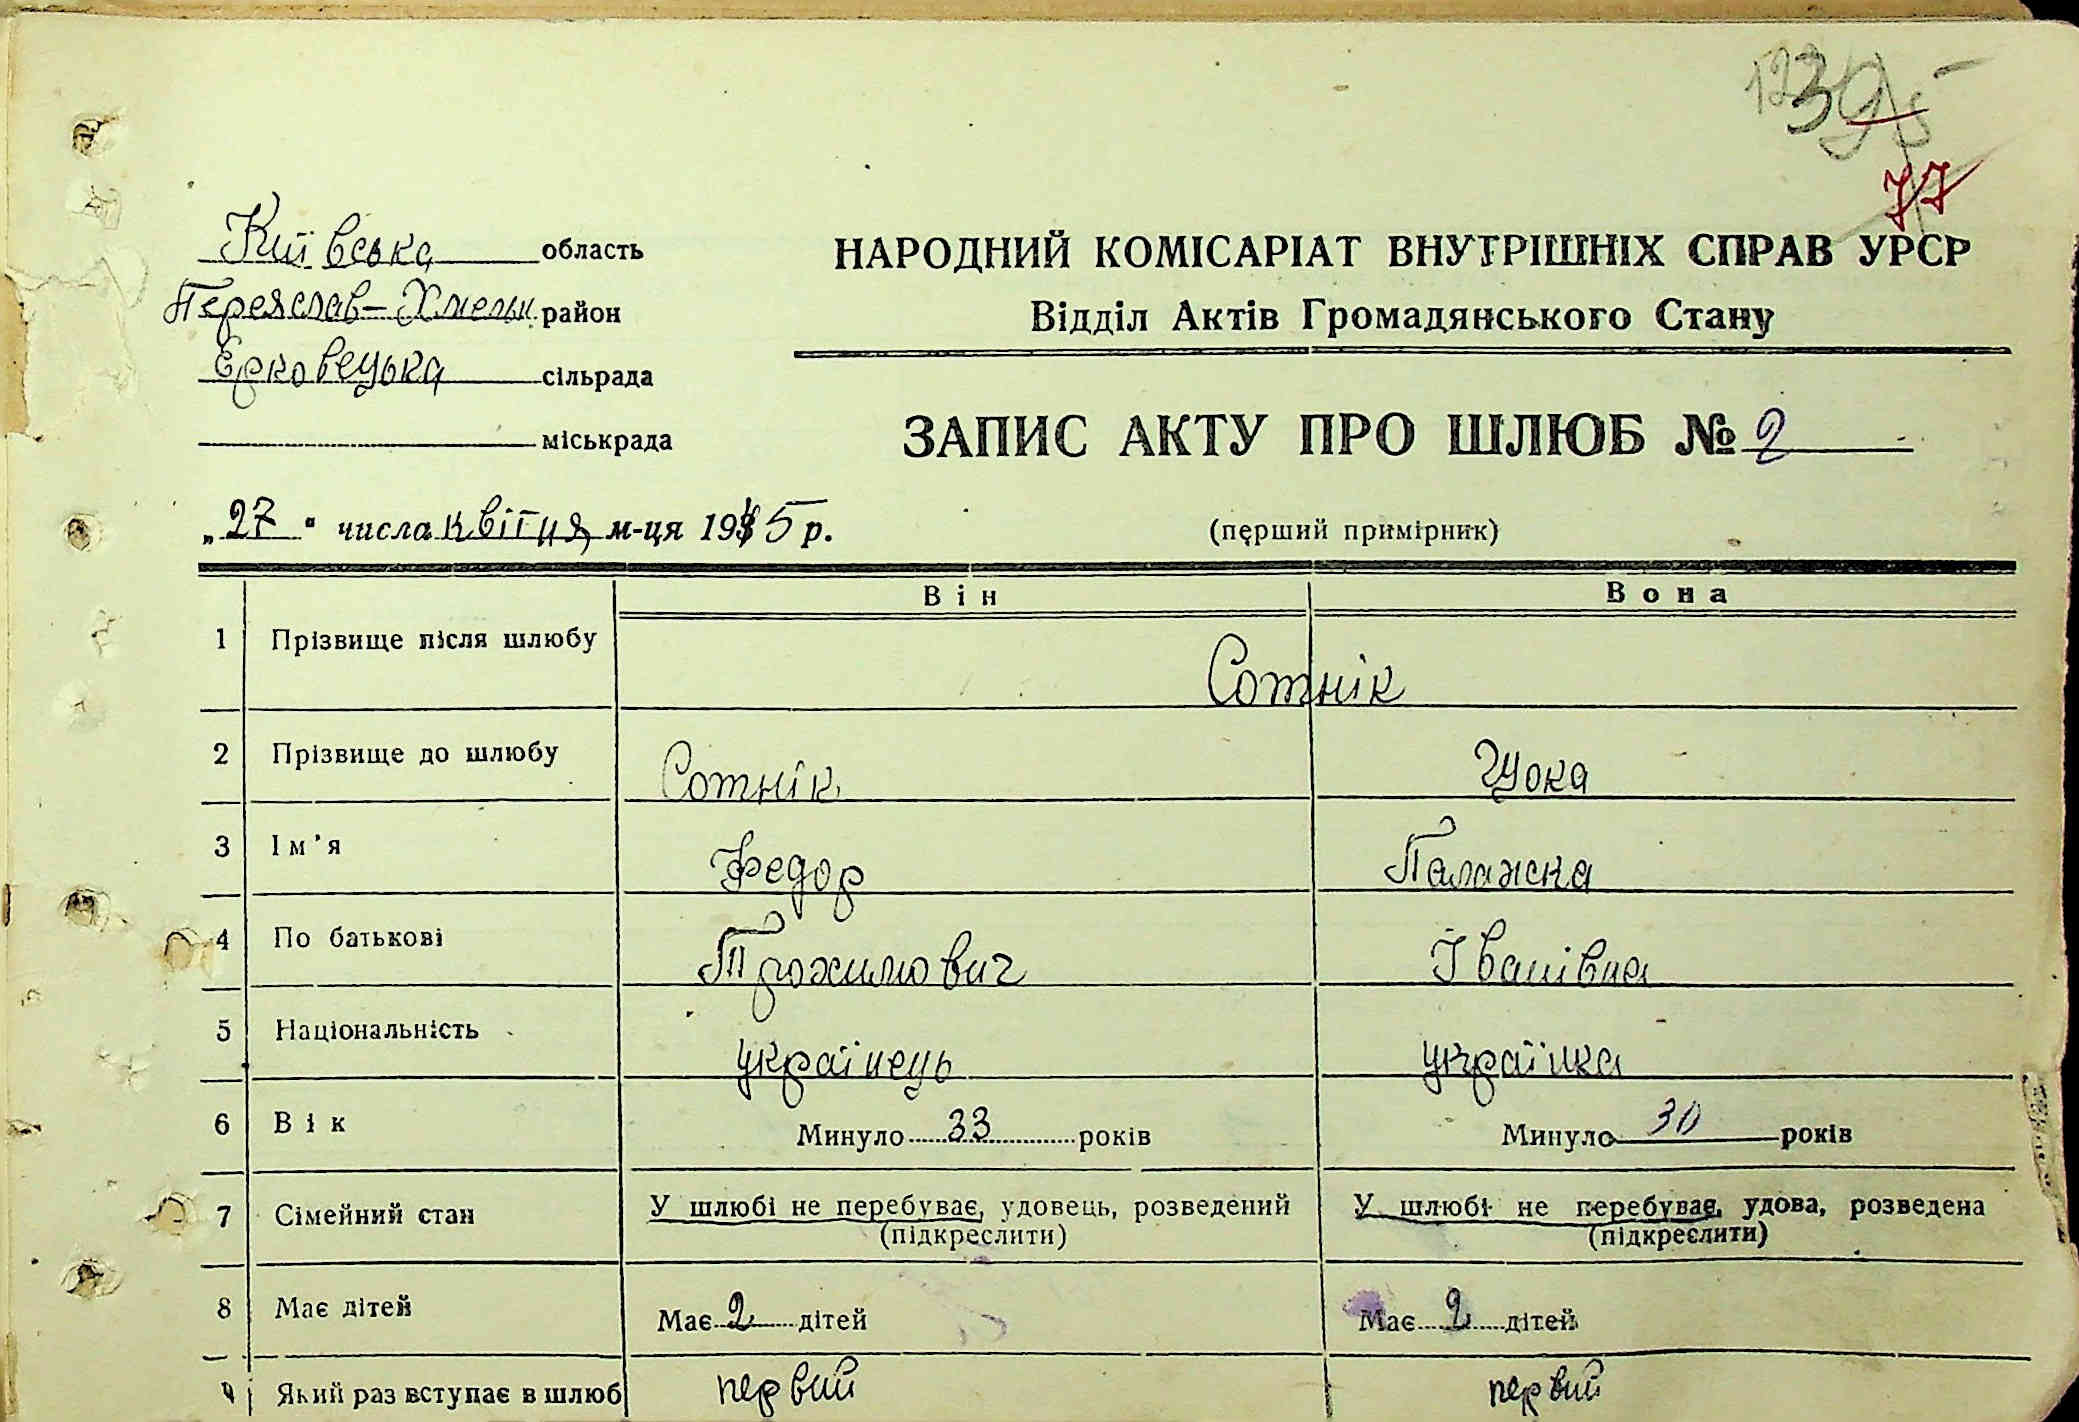 77
Київська область
Переяслав-Хмельн район
Єрковецька сільрада
міськрада
НАРОДНИЙ КОМІСАРІАТ ВНУТРІШНІХ СПРАВ УРСР
Відділ Актів Громадянського Стану
ЗАПИС АКТУ ПРО ШЛЮБ № 2
„27" числа квітня м-ця 1945 р.
(перший примірник)
Він Вона
1 Прізвище після шлюбу Сотнік
2 Прізвище до шлюбу Сотнік Цюка
3 Ім'я Федор Палажка
4 По батькові Трохимович Іванівна
5 Національність українець українка
6 Вік Минуло 33 років Минуло 30 років
7 Сімейний стан У шлюбі не перебуває, удовець, розведений У шлюбі не перебуває, удова, розведена
(підкреслити) (підкреслити)
8 Має дітей Має 2 дітей Має 2 дітей
9 Який раз вступає в шлюб первий первий